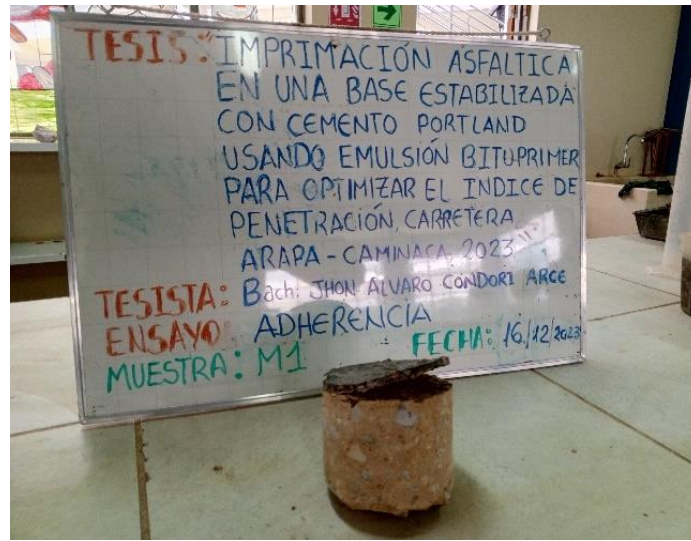 TESIS: "IMPRIMACIÓN ASFALTICA
EN UNA BASE ESTABILIZADA
CON CEMENTO PORTLAND
USANDO EMULSIÓN BITUPRIMER
PARA OPTIMIZAR EL INDICE DE
PENETRACIÓN, CARRETERA
ARAPA - CAMINACA, 2023"
TESISTA: Bach: JHON ALVARO CONDORI ARCE
ENSAYO: ADHERENCIA
MUESTRA: M1 FECHA: 16/12/2023